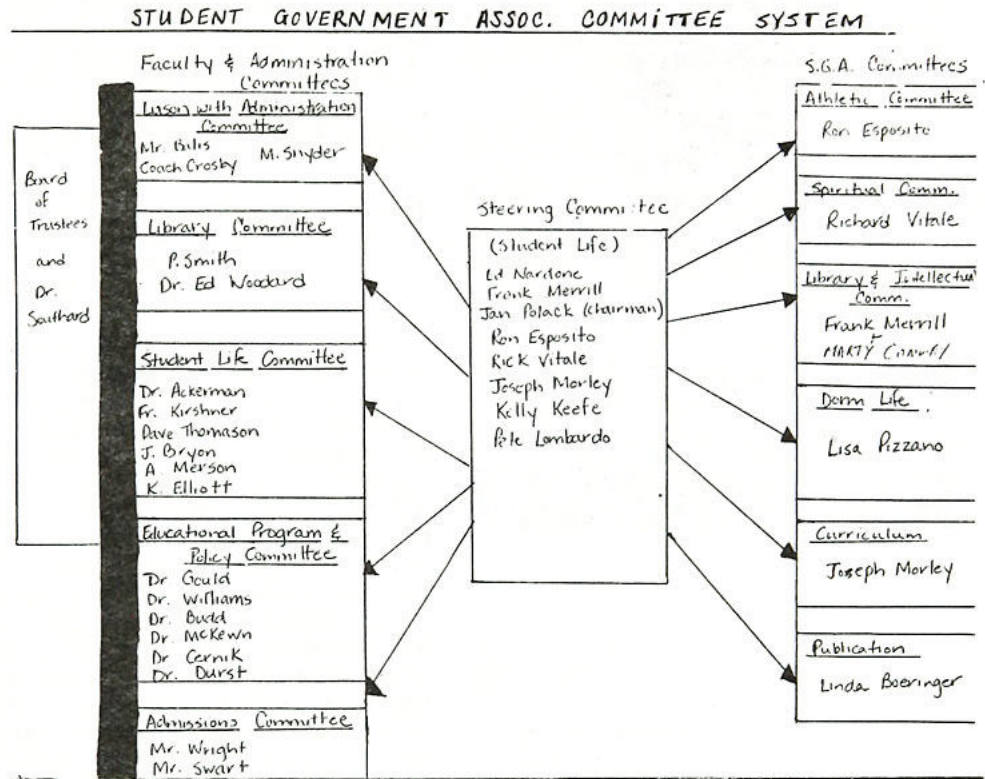 STUDENT GOVERNMENT ASSOC. COMMITTEE SYSTEM
Board
of
Trustees
and
Dr.
Southard
Faculty & Administration
Committees
Liason with Administration
Committee
Mr. Bilis M. Snyder
Coach Crosby
Library Committee
P. Smith
Dr. Ed Woodard
Student Life Committee
Dr. Ackerman
Fr. Kirshner
Dave Thomason
J. Bryon
A. Merson
K. Elliott
Educational Program &
Policy Committee
Dr Gould
Dr. Williams
Dr. Budd
Dr. McKewn
Dr Cernik
Dr. Durst
Admissions Committee
Mr. Wright
Mr. Swart
Steering Committee
(Student Life)
Ed Nardone
Frank Merrill
Jan Polack (chairman)
Ron Esposito
Rick Vitale
Joseph Morley
Kelly Keefe
Pete Lombardo
S.G.A. Committees
Athletic Committee
Ron Esposito
Spiritual Comm.
Richard Vitale
Library & Intellectual
Comm.
Frank Merrill
MARTY
Dorm Life
Lisa Pizzano
Curriculum
Joseph Morley
Publication
Linda Boeringer